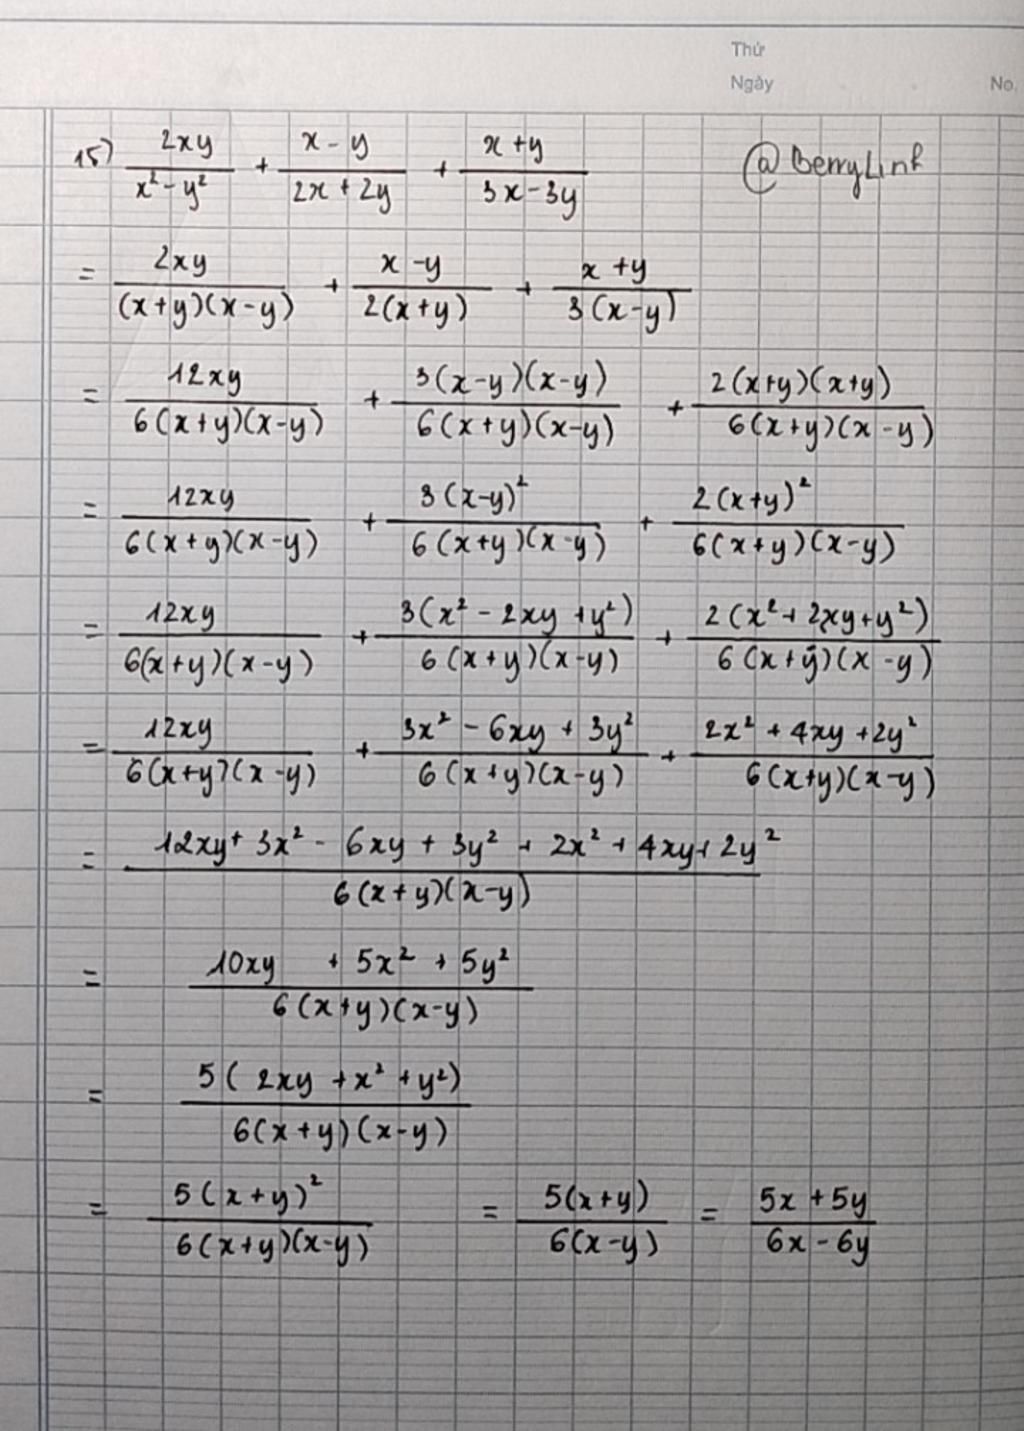 Thứ
Ngày No.
15) 2xy/(x² - y²) + (x - y)/(2x + 2y) + (x + y)/(3x - 3y) @BerryLinh
= 2xy/((x+y)(x-y)) + (x - y)/(2(x+y)) + (x + y)/(3(x-y))
= 12xy/(6(x+y)(x-y)) + 3(x-y)(x-y)/(6(x+y)(x-y)) + 2(x+y)(x+y)/(6(x+y)(x-y))
= 12xy/(6(x+y)(x-y)) + 3(x-y)²/(6(x+y)(x-y)) + 2(x+y)²/(6(x+y)(x-y))
= 12xy/(6(x+y)(x-y)) + 3(x² - 2xy + y²)/(6(x+y)(x-y)) + 2(x² + 2xy + y²)/(6(x+y)(x-y))
= 12xy/(6(x+y)(x-y)) + (3x² - 6xy + 3y²)/(6(x+y)(x-y)) + (2x² + 4xy + 2y²)/(6(x+y)(x-y))
= (12xy + 3x² - 6xy + 3y² + 2x² + 4xy + 2y²)/(6(x+y)(x-y))
= (10xy + 5x² + 5y²)/(6(x+y)(x-y))
= 5(2xy + x² + y²)/(6(x+y)(x-y))
= 5(x+y)²/(6(x+y)(x-y)) = 5(x+y)/(6(x-y)) = (5x + 5y)/(6x - 6y)